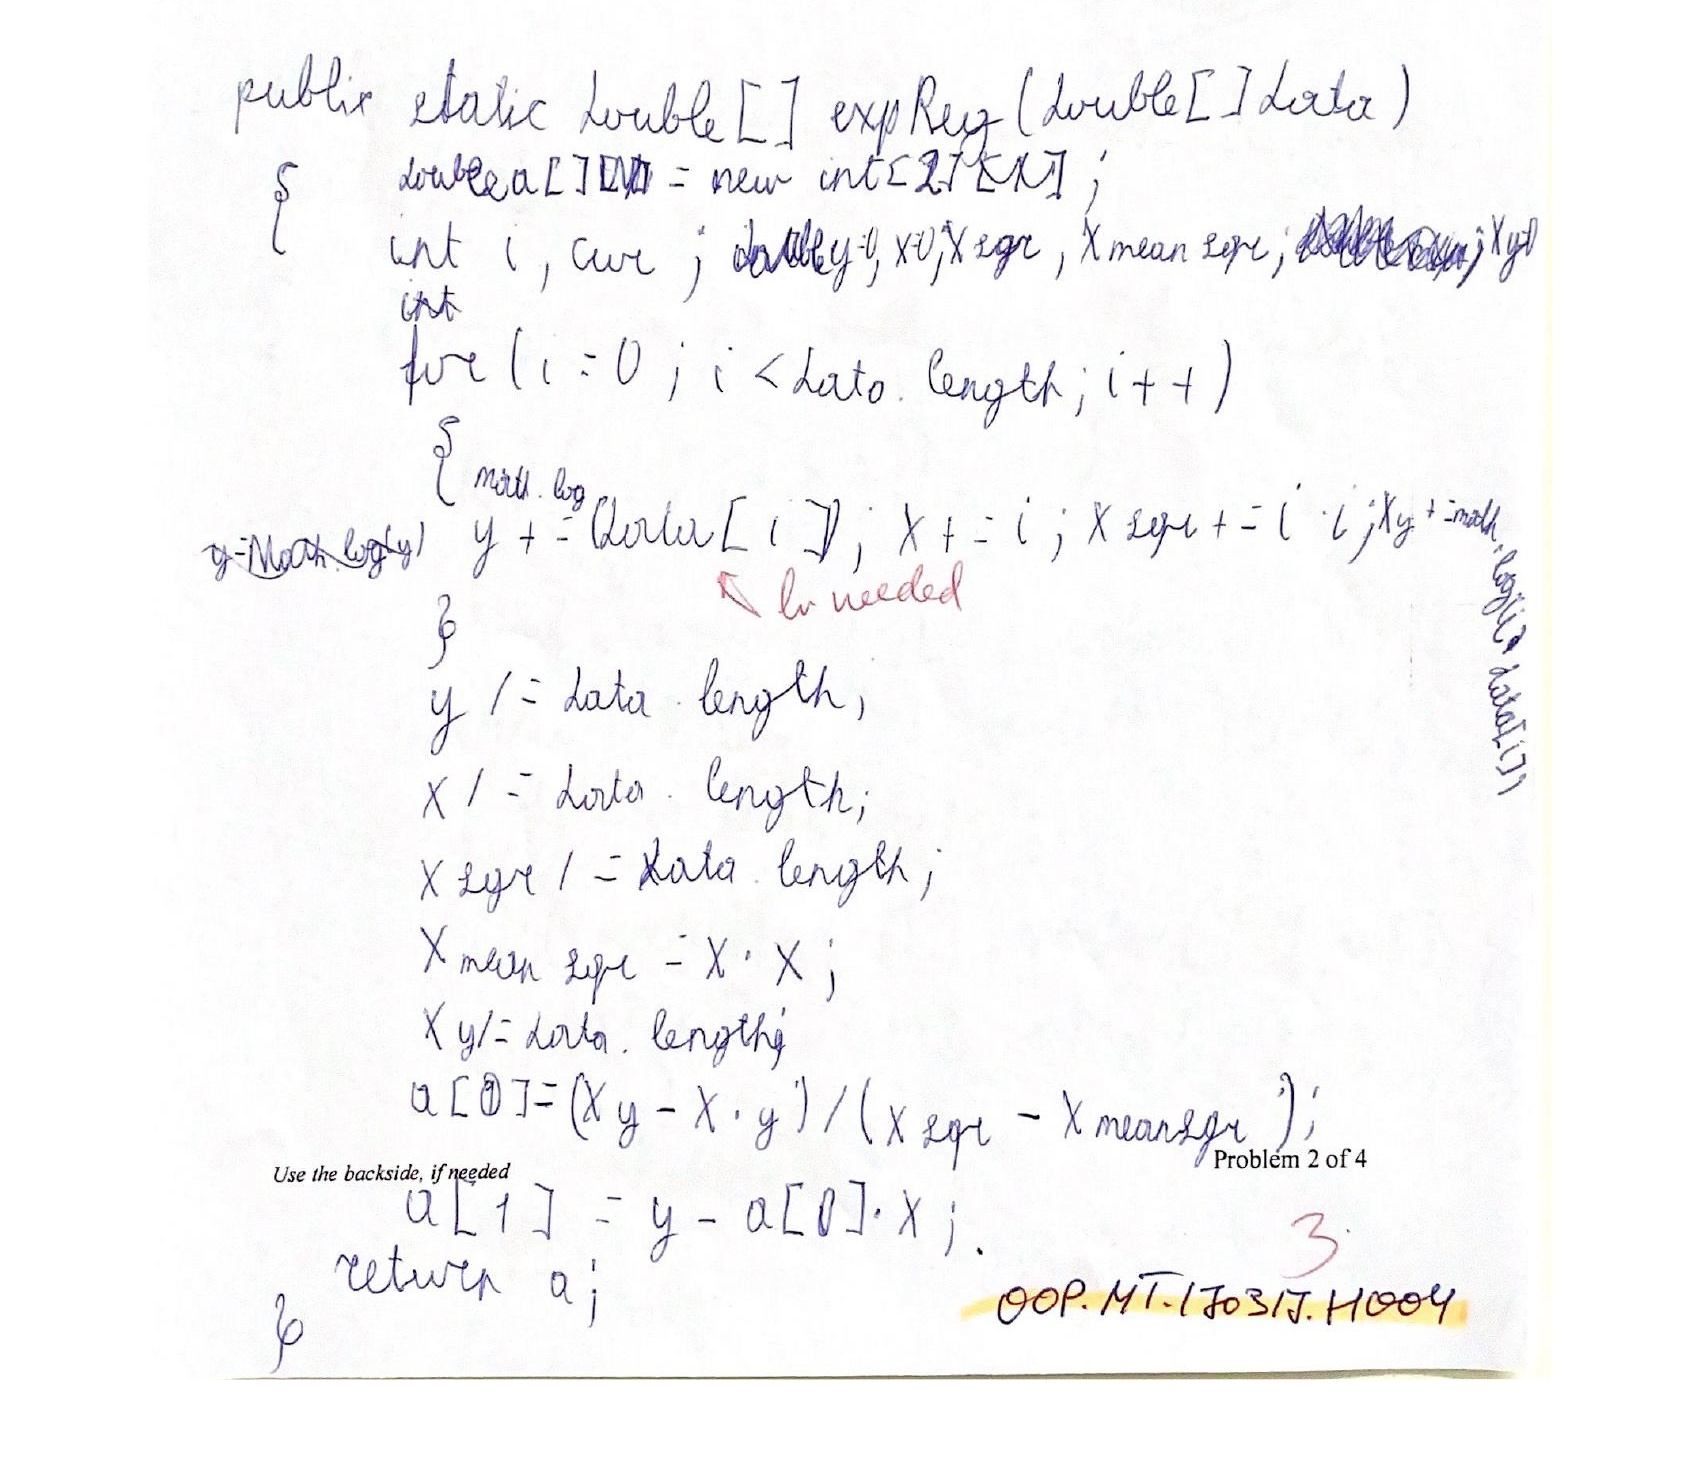 public static double[] expReg(double[] data)
{ double a[] = new int[2];
int i, cur; double y=0, x=0, xsqr, xmeansqr; xy=0
int
for (i=0; i<data.length; i++)
{
math.log
y=Math.log(y) y += (data[i]); x+=i; xsqr+=i·i; xy+=math.log(i· data[i])
ln needed
}
y /= data.length;
x /= data.length;
xsqr /= data.length;
xmeansqr = x·x;
xy/= data.length;
a[0]=(xy-x·y)/(xsqr - xmeansqr);
Use the backside, if needed Problem 2 of 4
a[1] = y - a[0]·x;
3.
return a;
OOP.MT.170317.H004
}